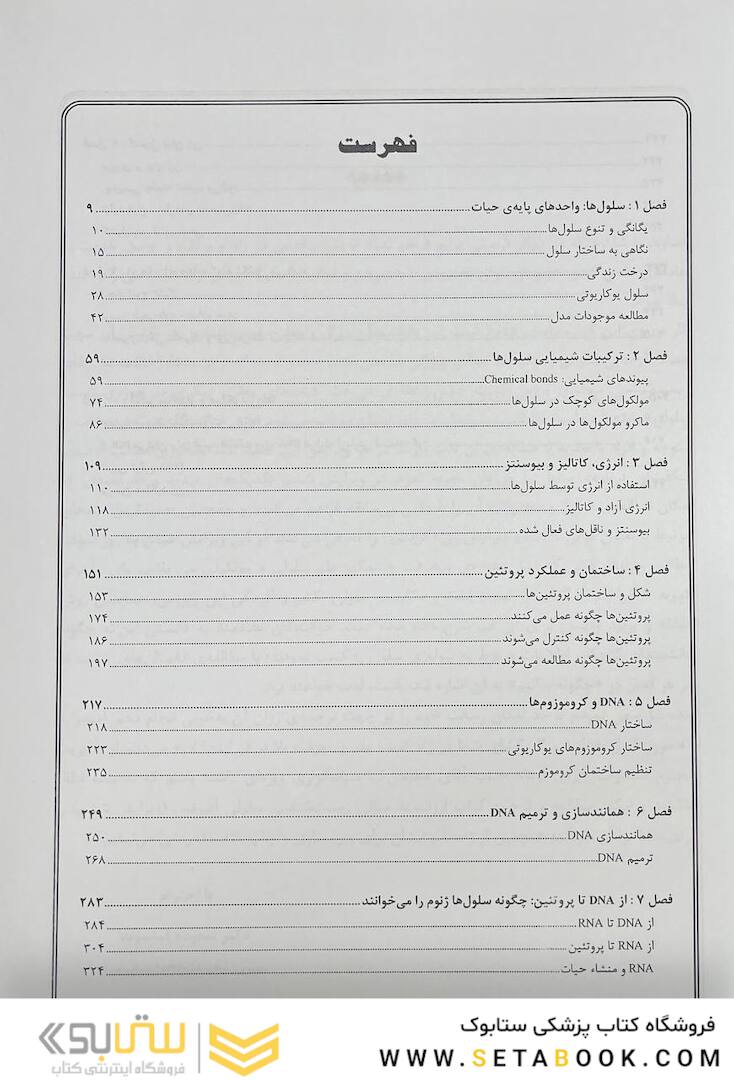 فهرست
فصل ۱ : سلول‌ها: واحدهای پایه‌ی حیات ۹
یگانگی و تنوع سلول‌ها ۱۰
نگاهی به ساختار سلول ۱۵
درخت زندگی ۱۹
سلول یوکاریوتی ۲۸
مطالعه موجودات مدل ۴۲
فصل ۲ : ترکیبات شیمیایی سلول‌ها ۵۹
پیوندهای شیمیایی: Chemical bonds ۵۹
مولکول‌های کوچک در سلول‌ها ۷۴
ماکرو مولکول‌ها در سلول‌ها ۸۶
فصل ۳ : انرژی، کاتالیز و بیوسنتز ۱۰۹
استفاده از انرژی توسط سلول‌ها ۱۱۰
انرژی آزاد و کاتالیز ۱۱۸
بیوسنتز و ناقل‌های فعال شده ۱۳۲
فصل ۴ : ساختمان و عملکرد پروتئین ۱۵۱
شکل و ساختمان پروتئین‌ها ۱۵۳
پروتئین‌ها چگونه عمل می‌کنند ۱۷۴
پروتئین‌ها چگونه کنترل می‌شوند ۱۸۶
پروتئین‌ها چگونه مطالعه می‌شوند ۱۹۷
فصل ۵ : DNA و کروموزوم‌ها ۲۱۷
ساختار DNA ۲۱۸
ساختار کروموزوم‌های یوکاریوتی ۲۲۳
تنظیم ساختمان کروموزم ۲۳۵
فصل ۶ : همانندسازی و ترمیم DNA ۲۴۹
همانندسازی DNA ۲۵۰
ترمیم DNA ۲۶۸
فصل ۷ : از DNA تا پروتئین: چگونه سلول‌ها ژنوم را می‌خوانند ۲۸۳
از DNA تا RNA ۲۸۴
از RNA تا پروتئین ۳۰۴
RNA و منشاء حیات ۳۲۴
فروشگاه کتاب پزشکی ستابوک
WWW.SETABOOK.COM
ستابوک
فروشگاه اینترنتی کتاب